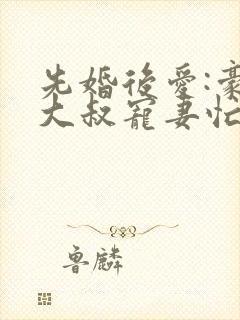 先婚後愛:豪
大叔寵妻忙
魯麟